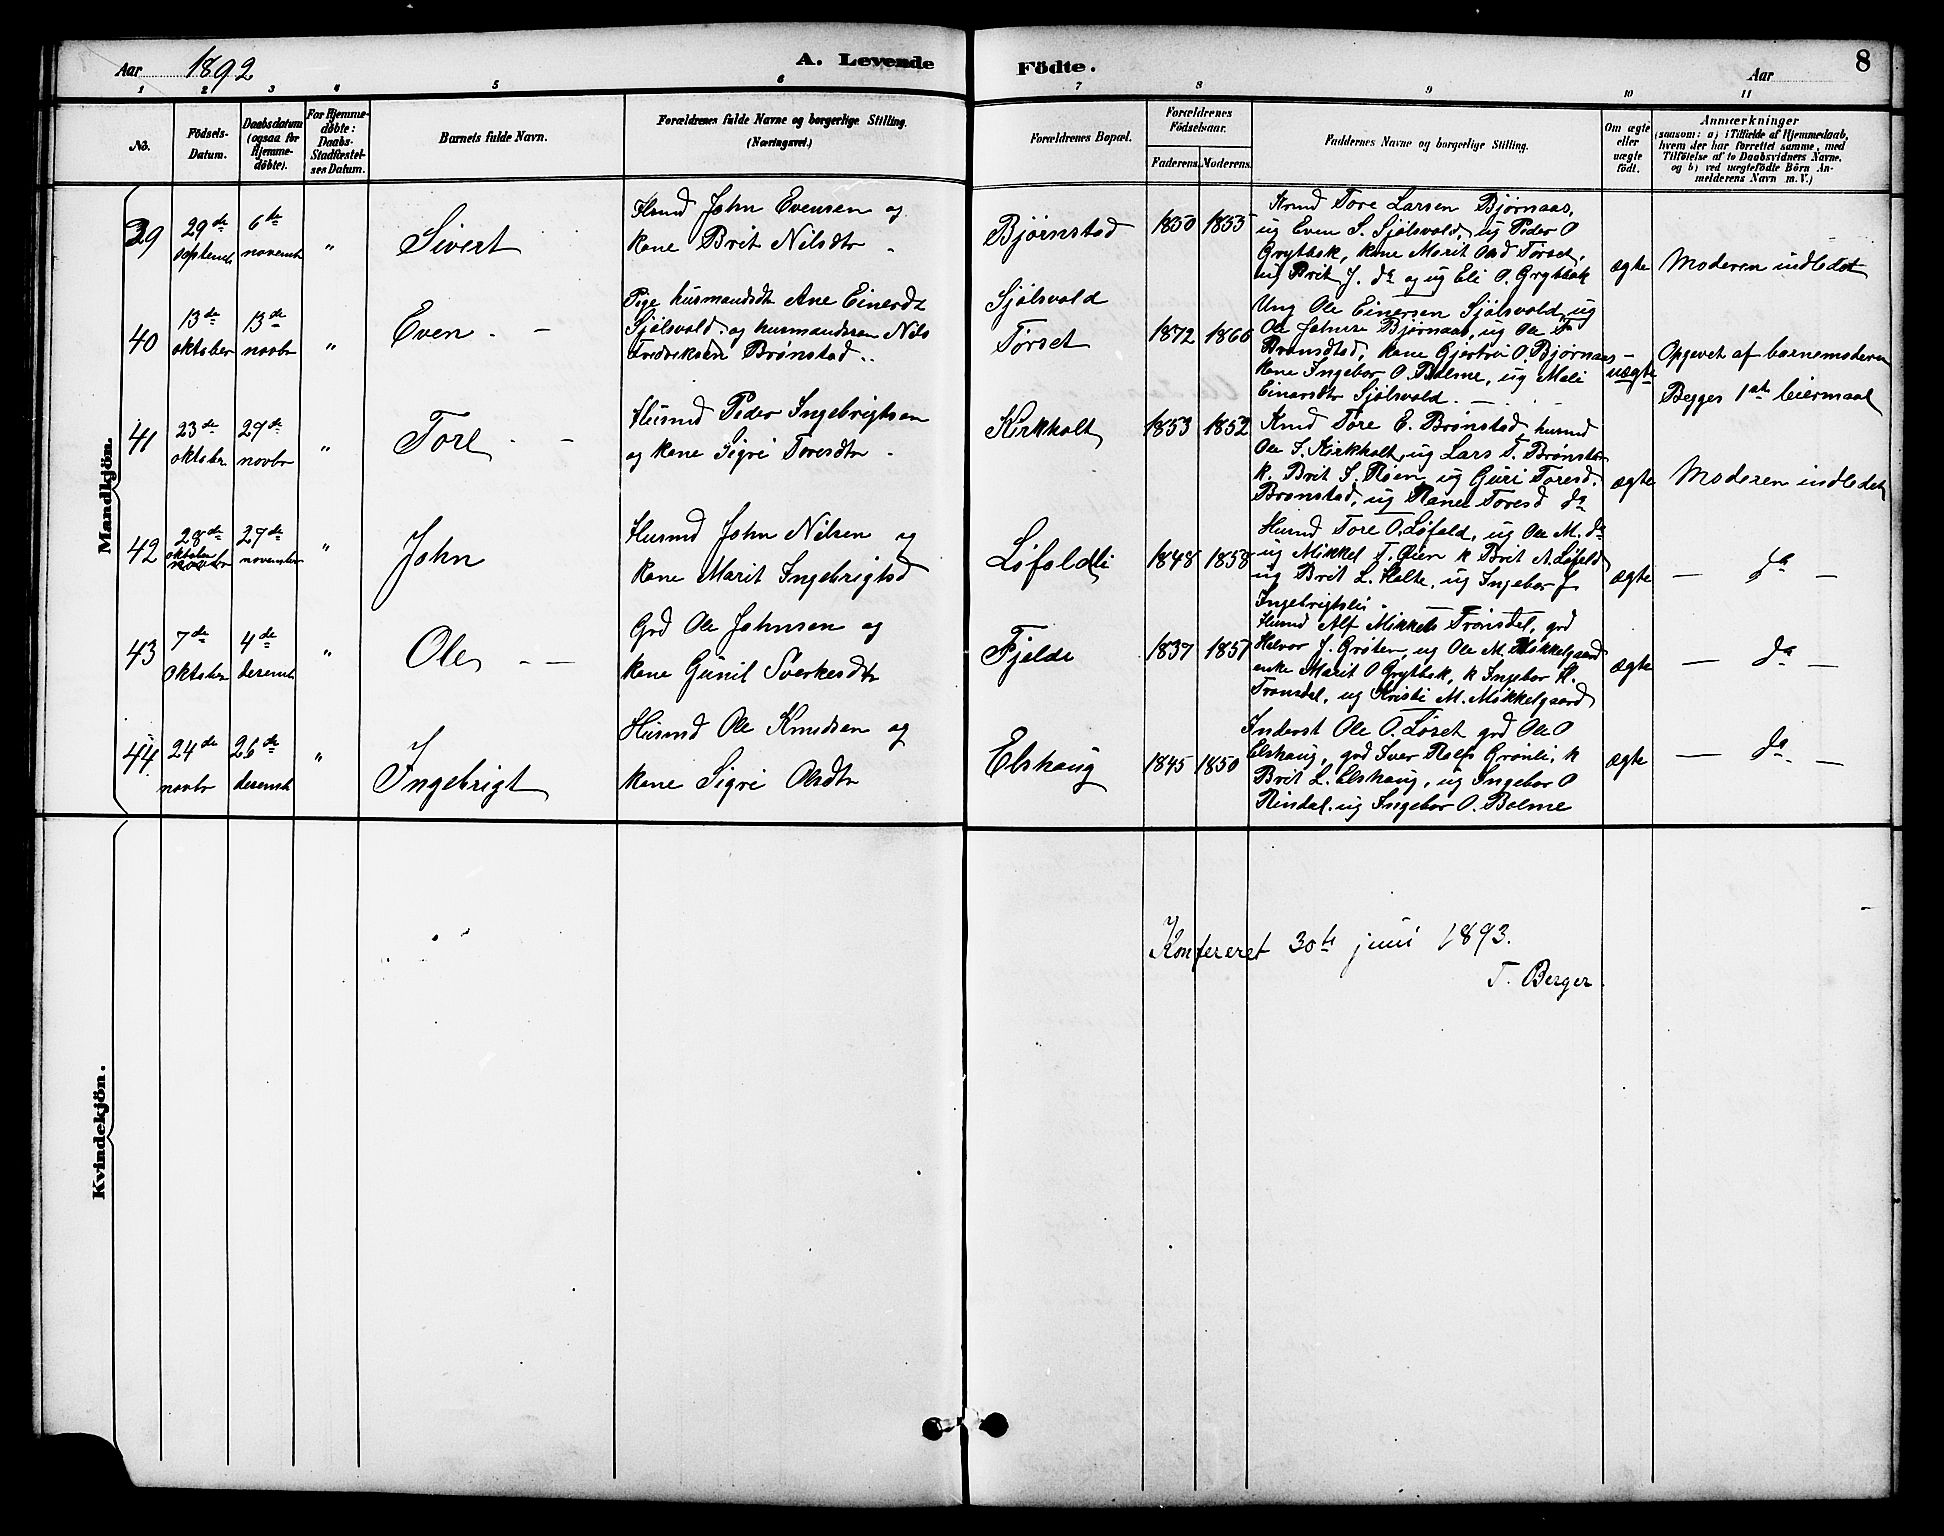 Aar 1892
A. Levende Födte.
Aar
8
1 2 3 4 5 6 7 8 9 10 11
No.
Födsels-Datum.
Daabsdatum (ogsaa for Hjemme-döbte).
For Hjemme-döbte: Daabs-Stadfæstel-ses Datum.
Barnets fulde Navn.
Forældrenes fulde Navne og borgerlige Stilling. (Næringsvei.)
Forældrenes Bopæl.
Forældrenes Födselsaar.
Faderens. Moderens.
Faddernes Navne og borgerlige Stilling.
Om ægte eller uægte födt.
Anmærkninger
(saasom: a) i Tilfælde af Hjemmedaab, hvem der har forrettet samme, med Tilföielse af to Daabsvidners Navne, og b) ved uægtefödte Börn An-melderens Navn m. V.)
Mandkjön.
39
29de
septemb
6te
novemb
"
Sivert
Husmd John Evensen og
kone Brit Nilsdtr
Bjørnstad
1850 1855
Kmd Tore Larsen Bjørnaas,
ug Even S. Sjølsvold, ug Peder O
Grytbak, kone Marit Ond Tørset,
ug Brit J. do og ug Eli O. Grytbak
ægte
Moderen indledet
40
13de
oktober
13de
novbr
"
Even
Pige husmandsdt Ane Einersdt
Sjølsvold og husmandssøn Nils
Fredriksen Brønstad
Sjølsvold
Tørset
1872 1866
Ung Ole Einersen Sjølsvold, ug
Ole Johnsen Bjørnaas, ug Ole F
Brønsdtad, kone Gjertru O. Bjørnaas
kone Ingebor O. Bolme, ug Mali
Einarsdtr Sjølsvold
uægte
Opgevet af barnemoderen
Begges 1ste leiermaal
41
23de
oktober
29de
novbr
"
Tore
Husmd Peder Ingebrigtsen
og kone Sigri Toresdtr
Kirkholt
1853 1852
Kmd Tore E. Brønstad, husmd
Ole I. Kirkholt, ug Lars T. Brønstad
k. Brit I. Røen, ug Guri Toresd.
Brønstad, ug Rane Toresd do
ægte
Moderen indledet
42
28de
oktober
novbr
27de
november
"
John
Husmd John Nilsen og
kone Marit Ingebrigtsd
Løfaldli
1848 1858
Husmd Tore O. Løfald, ug Ole M. do
ug Mikkel T. Øien k Brit A. Løfald
ug Brit L. Holte, ug Ingebor J
Ingebrigtsli
ægte
— do —
43
7de
Oktober
4de
desemb
"
Ole
Grd Ole Johnsen og
kone Gunil Sverkesdtr
Fjelde
1837 1857
Husmd Alf Mikkels Trønsdal, grd
Halvor J. Grøten, ug Ole M. Mikkelgaard
enke Marit O Grytbak, k Ingebor H.
Trønsdal, ug Kristi M. Mikkelgaard
ægte
— do —
44
24de
novbr
26de
desemb
"
Ingebrigt
Husmd Ole Knudsen og
kone Sigri Olsdtr
Elshaug
1845 1850
Inderst Ole O. Løset grd Ole O
Elshaug, grd Iver Rolfs Grønli, k
Brit L. Elshaug, ug Ingebor O
Rindal, ug Ingebor O. Bolme
ægte
— do —
Kvindekjön.
Konfereret 30te juni 1893.
T. Berger